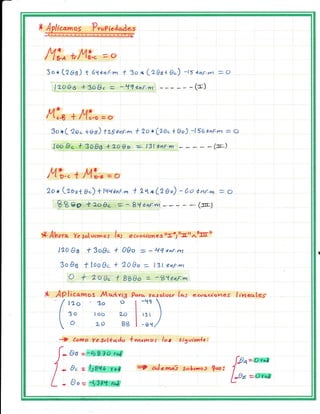 * Aplicamos Propiedades
M*B-A + M*B-C = 0
30*(2θB) + 64tnf·m + 30*(2θB+θC) -15tnf·m = 0
120θB + 30θC = -49tnf·m ------(I)
M*C-B + M*C-D = 0
30*(2θC+θB) +25tnf·m + 20*(2θC+θD) -156tnf·m = 0
100θC + 30θB + 20θD = 131tnf·m ------(II)
M*D-C + M*D-E = 0
20*(2θD+θC) + 144tnf·m + 24*(2θD) -60tnf·m = 0
88θD + 20θC = -84tnf·m ------(III)
* Ahora resolvemos las ecuaciones "I", "II" ∧ "III"
120θB + 30θC + 0θD = -49tnf·m
30θB + 100θC + 20θD = 131tnf·m
0 + 20θC + 88θD = -84tnf·m
* Aplicamos Matriz Para resolver las ecuaciones lineales
120 30 0 | -49
30 100 20 | 131
0 20 88 | -84
→ Como resultado tenemos los siguiente:
- θB = -0,870 rad
- θC = 1,846 rad
- θD = -1,374 rad
⇒ además sabemos que:
θA = 0 rad
θE = 0 rad